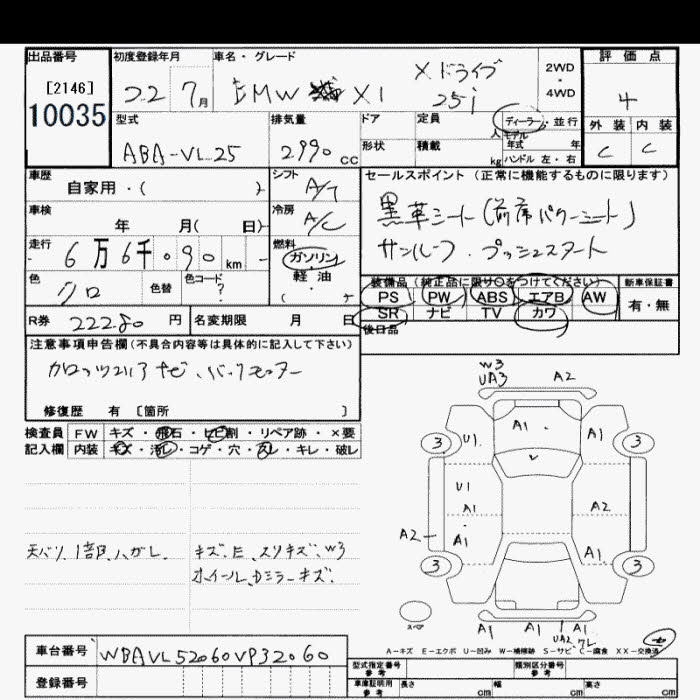 出品番号
[2146]
10035
初度登録年月
22 7月
車名・グレード
BMW X1
Xドライブ
25i
2WD
・
4WD
評価点
4
外装 内装
C C
型式
ABA-VL25
排気量
2990 CC
ドア
定員
人
形状
積載
kg
ディーラー・並行
モデル
年式 年
ハンドル 左・右
車歴
自家用・( )
シフト
A/T
セールスポイント(正常に機能するものに限ります)
黒革シート(前席パワーシート)
サンルーフ プッシュスタート
車検
年 月( 日)
冷房
A/C
走行
6万6千090km
燃料
ガソリン
軽油
( )
色
クロ
色替
色コード
?
装備品(純正品に限り○をつけてください)
PS PW ABS エアB AW
SR ナビ TV カワ
新車保証書
有・無
R券 22280円
名変期限 月 日
後日品
注意事項申告欄(不具合内容等は具体的に記入して下さい)
修復歴 有 [箇所 ]
検査員 FW キズ・飛石・ヒビ割・リペア跡・×要
記入欄 内装 キズ・汚レ・コゲ・穴・スレ・キレ・破レ
天バリ 1部ハガレ
キズ、E、スリキズ、W3
ホイール、Dミラーキズ
W3
UA3 A2
A1
3 U1 A1 3
U1
A1 A2
A2 A1
A1
3 3
スペア
A1 A1 A1
UA2 ワレ
A-キズ E-エクボ U-凹み W-補修跡 S-サビ C-腐食 XX-交換済
車台番号 WBAVL52060VP32060
登録番号
型式指定番号
参考
類別区分番号
参考
車庫証明用
参考
長さ cm 幅 cm 高さ cm